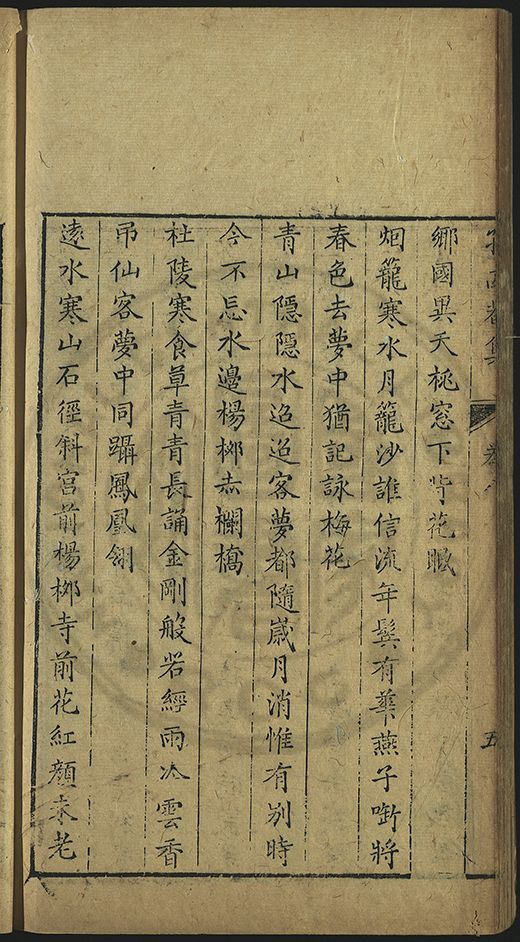 鄉國異夭桃窓下背花眠
烟籠寒水月籠沙誰信流年鬂有華燕子啣將
春色去夢中猶記詠梅花
青山隱隱水迢迢客夢都隨嵗月消惟有別時
今不忘水邉楊桞赤欄橋
杜陵寒食草青青長誦金剛般若經雨冷雲香
吊仙客夢中同躡鳳凰翎
逺水寒山石徑斜宮前楊桞寺前花紅顔未老
卷
五